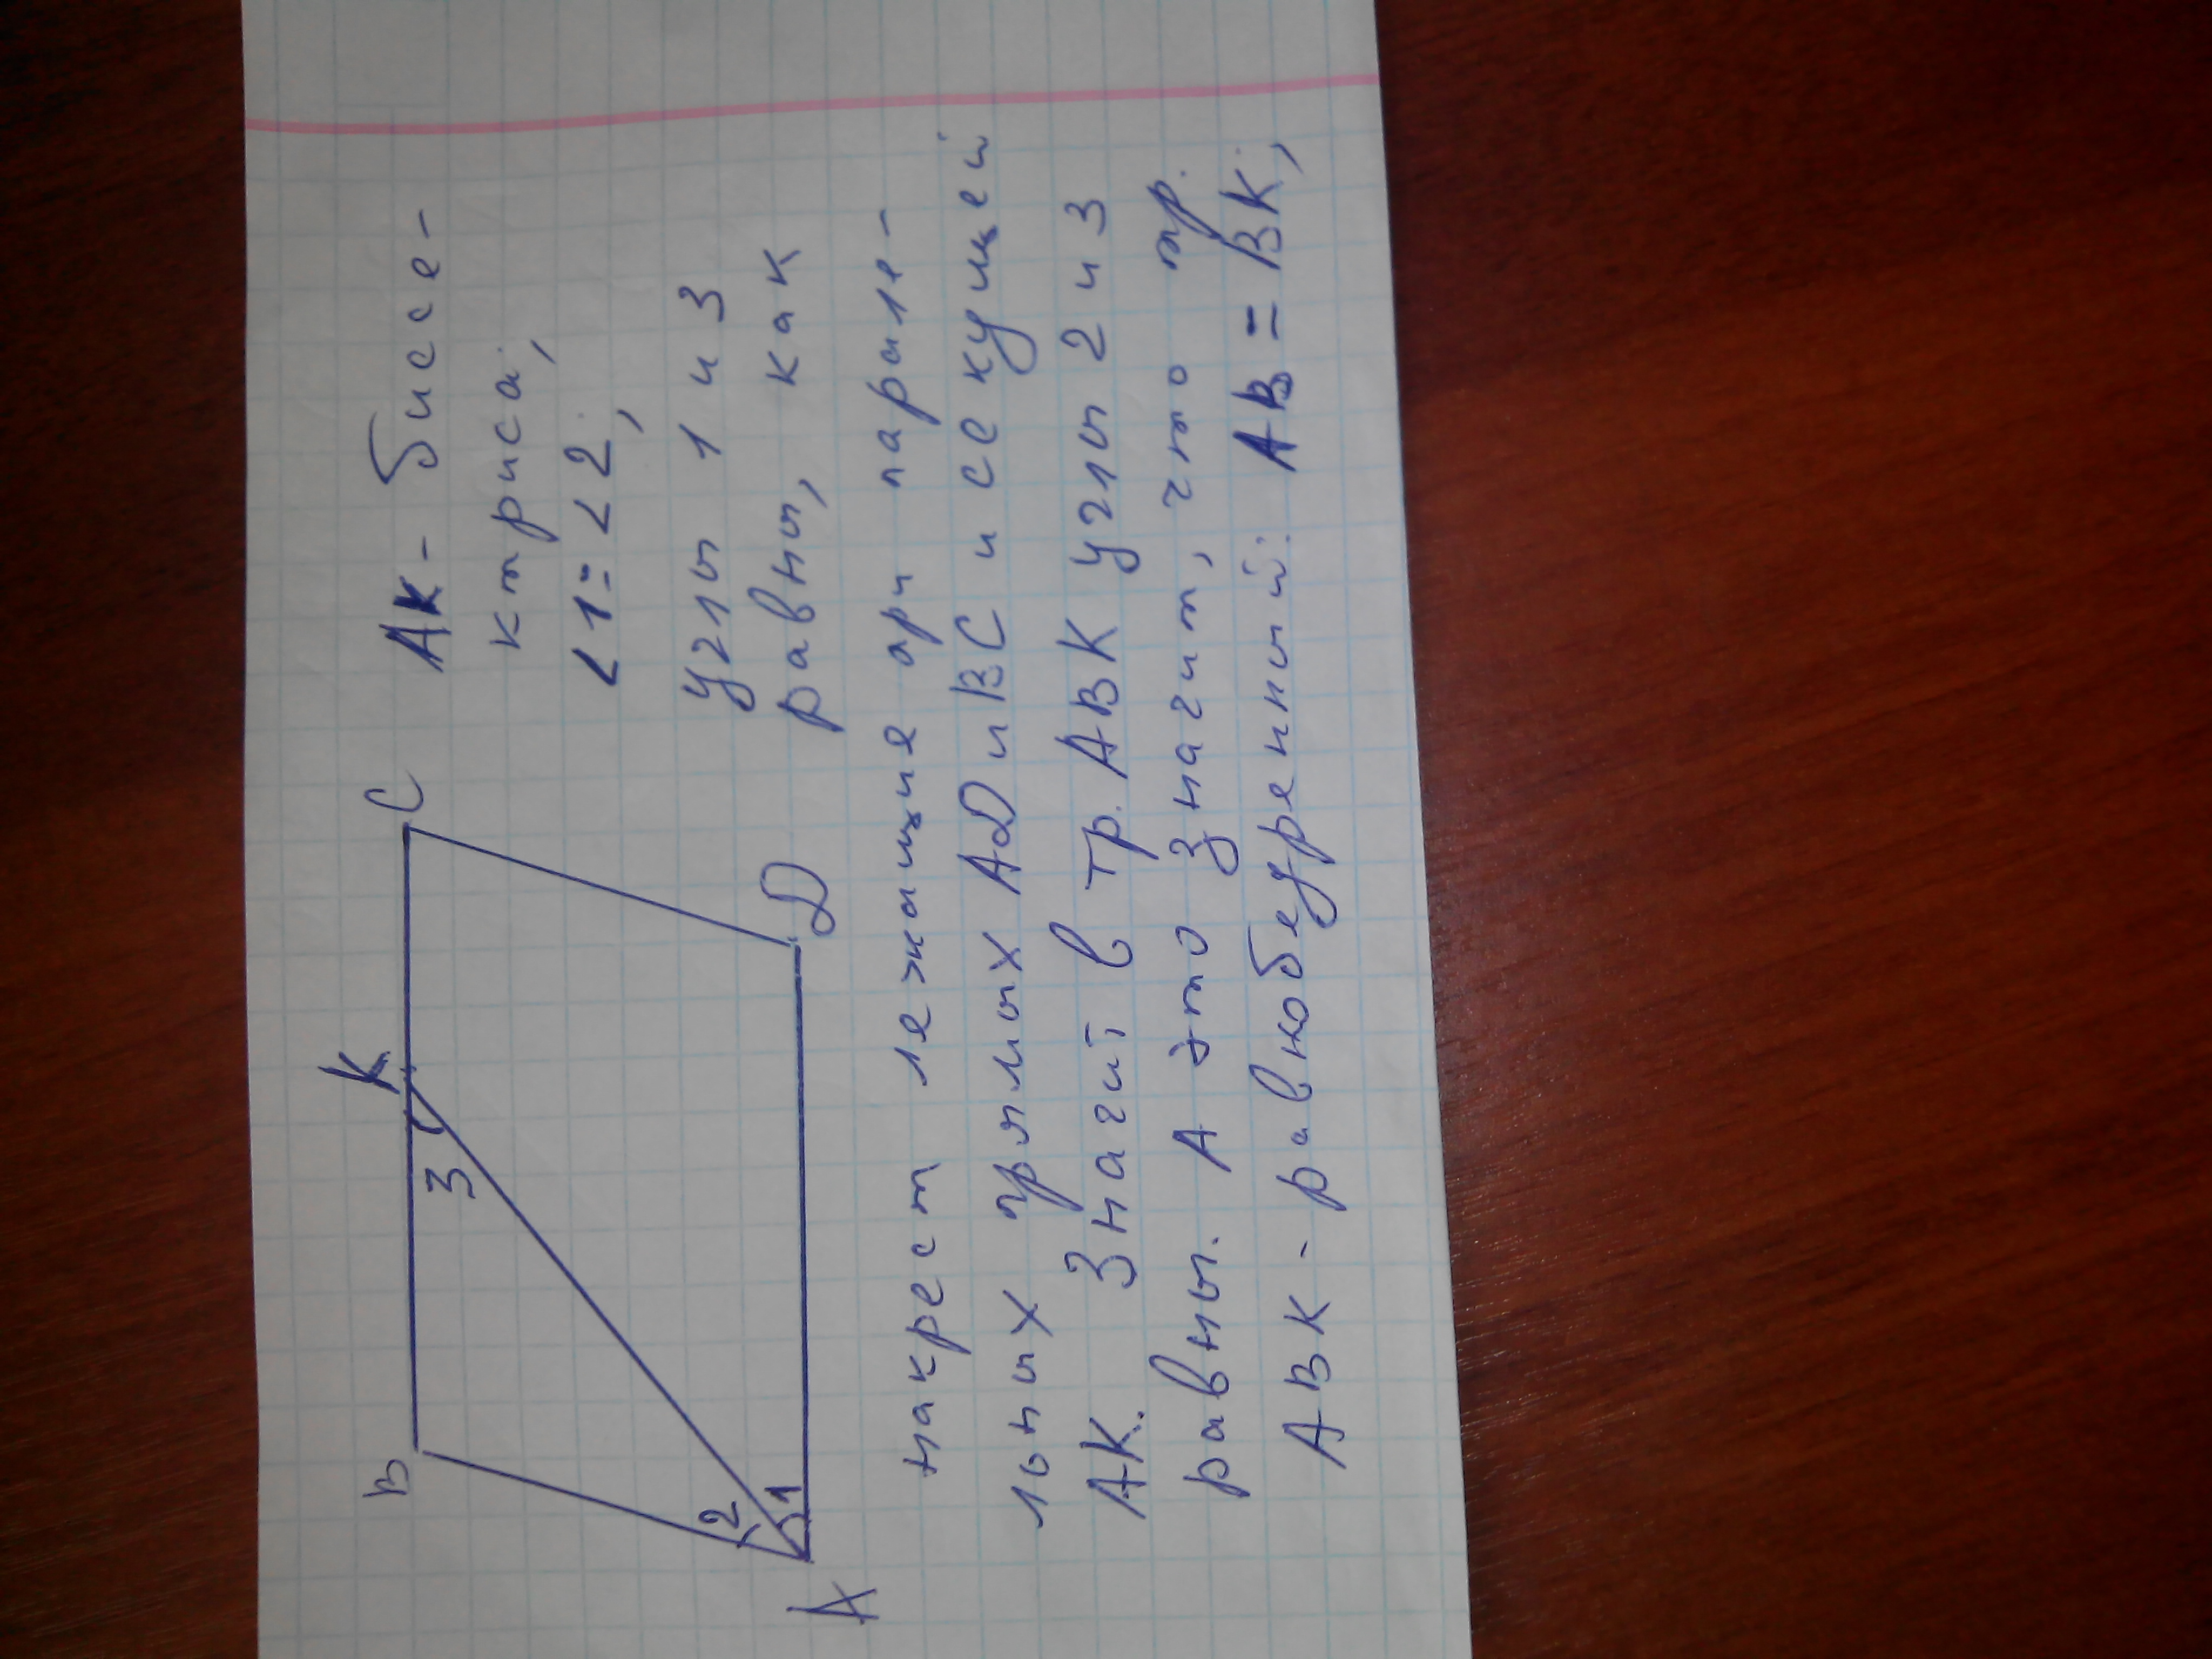 B K C
3
2
1
A D
AK - биссе-
ктриса;
<1 = <2;
углы 1 и 3
равны, как
накрест лежащие при парале-
льных прямых AD и BC и секущей
AK. Значит в тр. ABK углы 2 и 3
равны. А это значит, что тр.
ABK - равнобедренный: AB = BK;